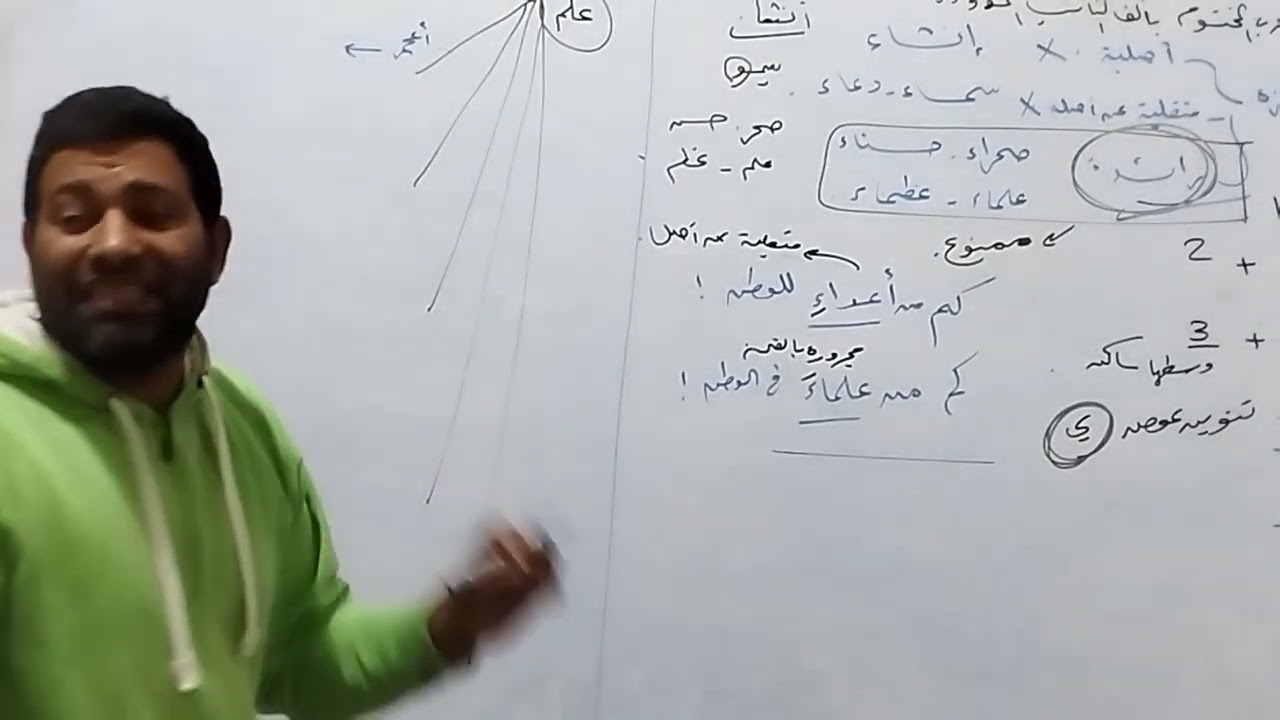 المختوم بألف التأنيث
أصلية . X إنشاء
منقلبة عن أصل X سماء - دعاء .
زائدة : صحراء . حسناء
علماء - عظماء
ممنوع .
كم من أعداءٍ للوطن !
منقلبة عن أصل .
كم من علماءَ في الوطن !
مجرورة بالفتحة
2 +
3 +
وسطها ساكن .
تنوين عوض ي
صحر . حسن
علم - عظم
علم
أعجمي ←